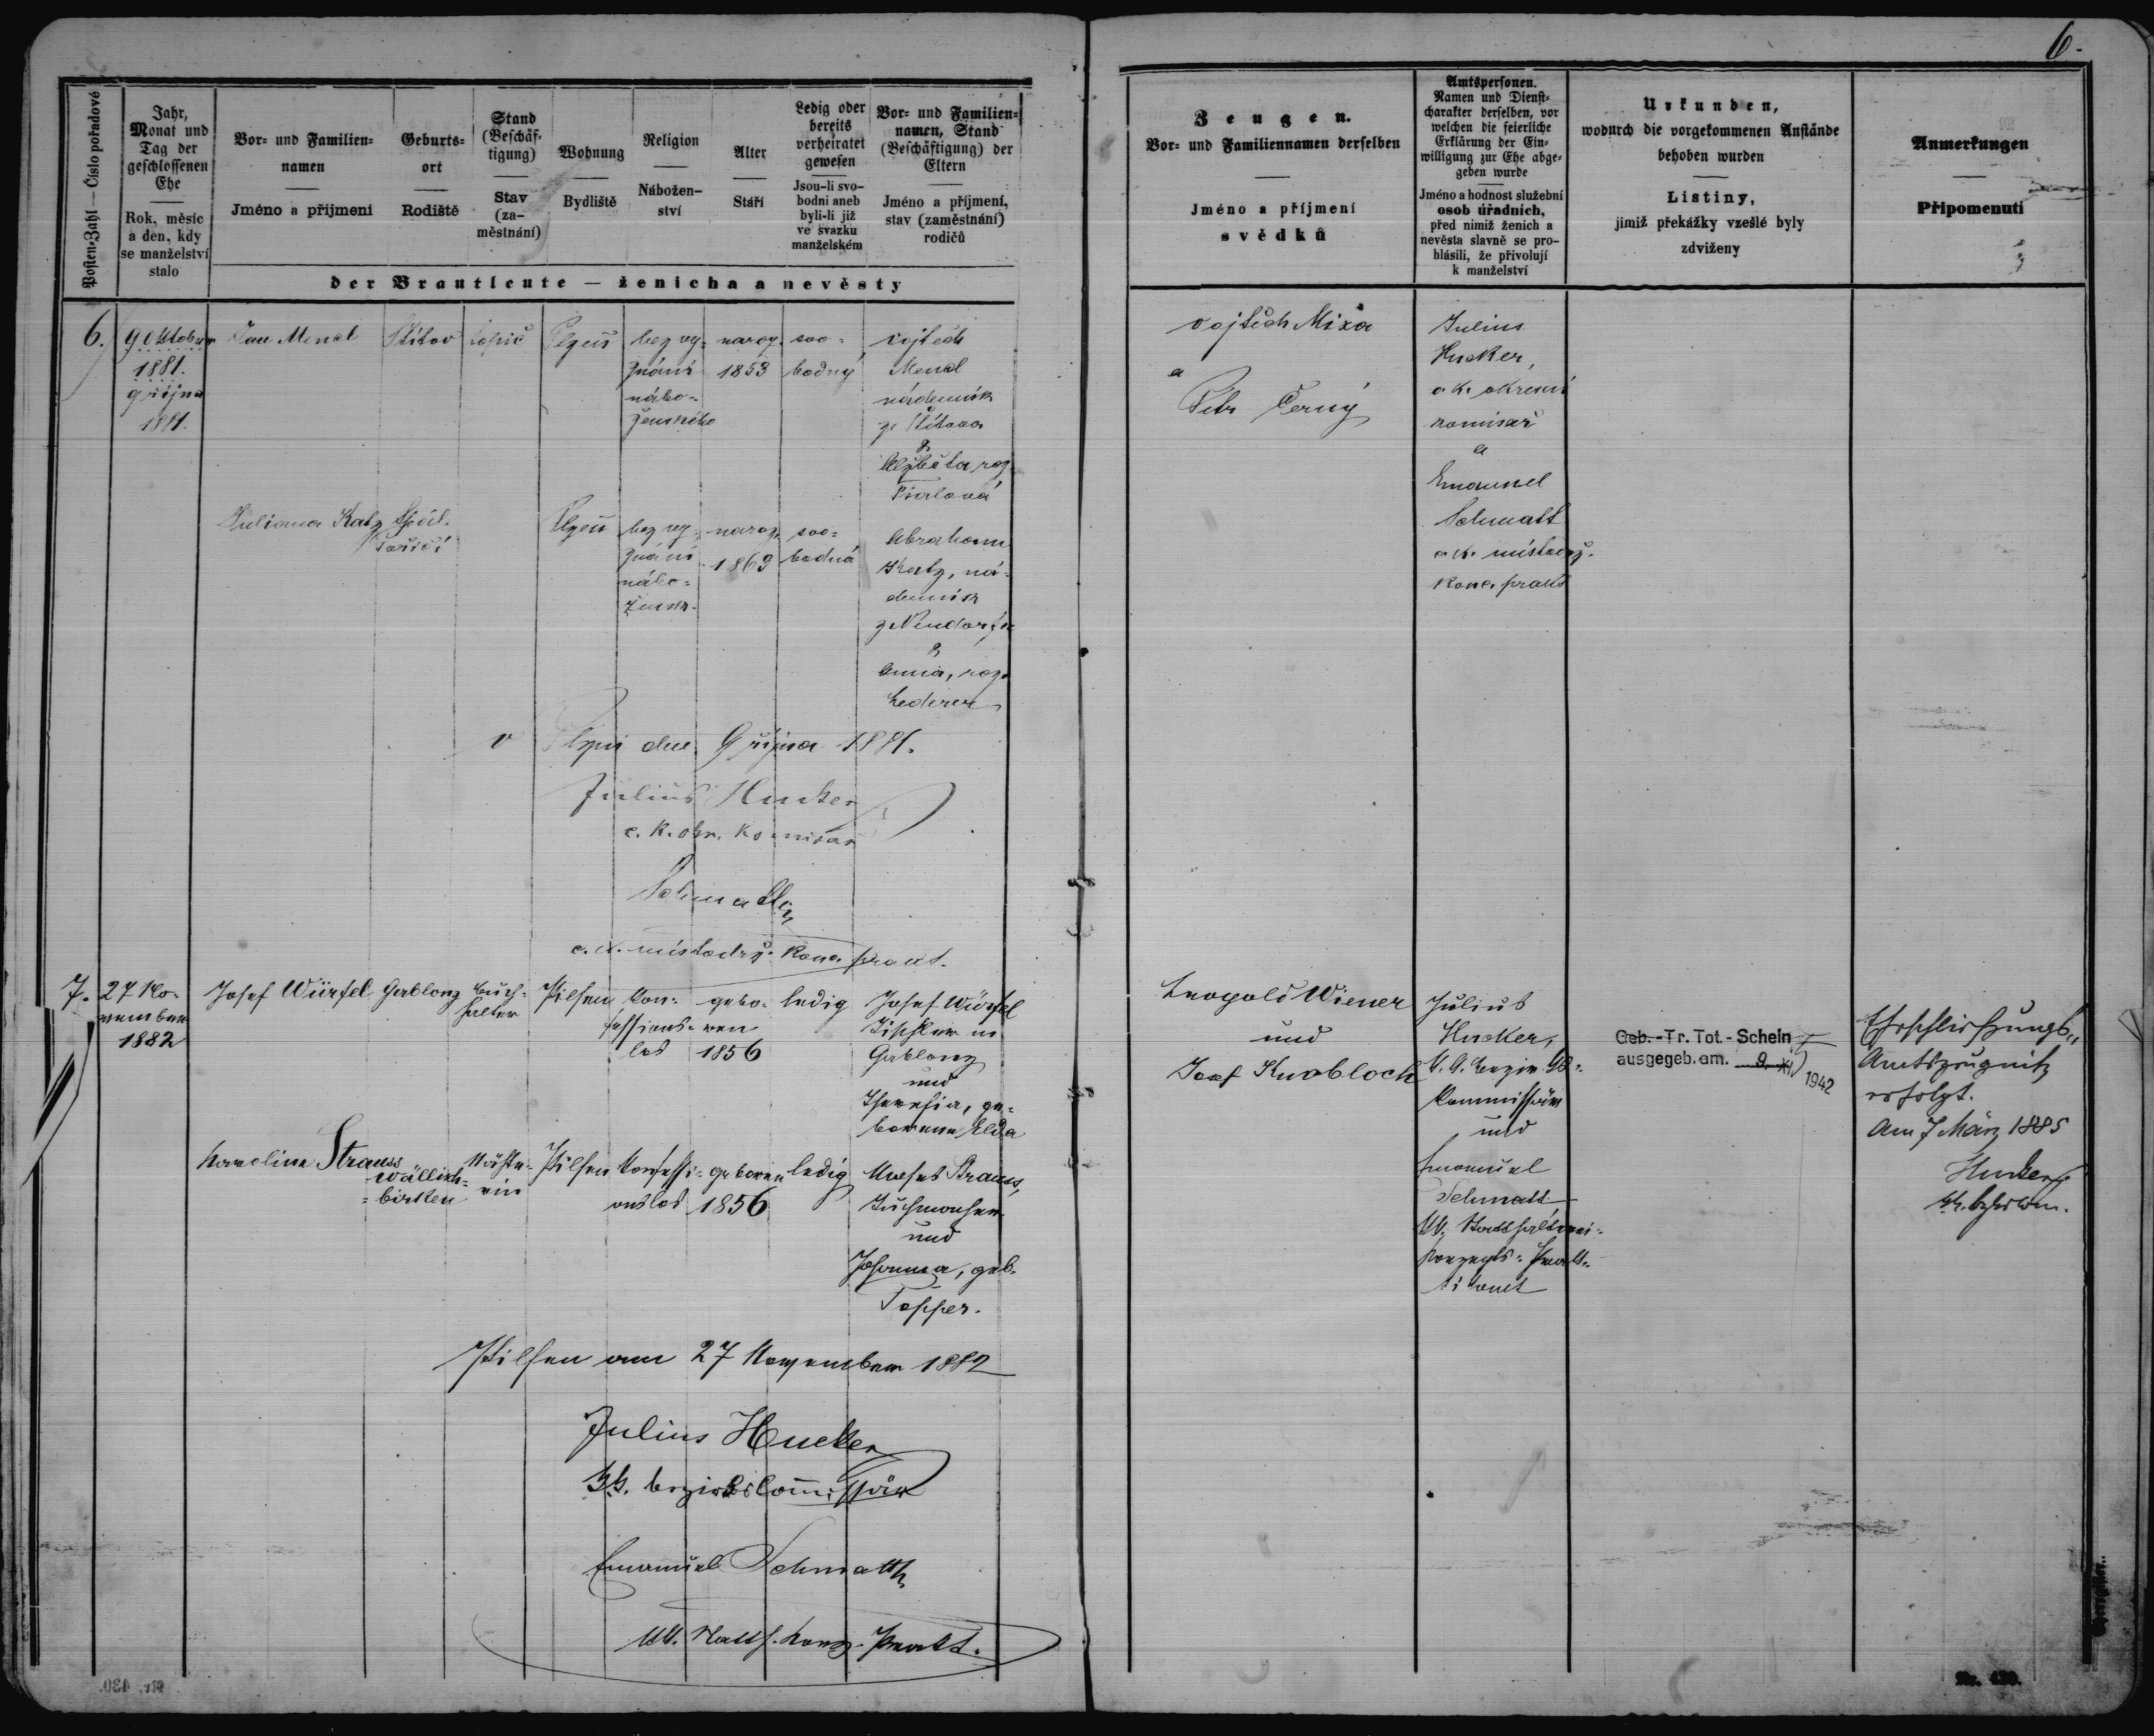 6.
Posten-Zahl — Číslo pořadové
Jahr,
Monat und
Tag der
geschlossenen
Ehe
Rok, měsíc
a den, kdy
se manželství
stalo
Vor- und Familien-
namen
Jméno a příjmení
Geburts-
ort
Rodiště
Stand
(Beschäf-
tigung)
Stav
(za-
městnání)
Wohnung
Bydliště
Religion
Nábožen-
ství
Alter
Stáří
Ledig oder
bereits
verheiratet
gewesen
Jsou-li svo-
bodni aneb
byli-li již
ve svazku
manželském
Vor- und Familien-
namen, Stand
(Beschäftigung) der
Eltern
Jméno a příjmení,
stav (zaměstnání)
rodičů
der Brautleute — ženicha a nevěsty
Zeugen.
Vor- und Familiennamen derselben
Jméno a příjmení
svědků
Amtspersonen.
Namen und Dienst-
charakter derselben, vor
welchen die feierliche
Erklärung der Ein-
willigung zur Ehe abge-
geben wurde
Jméno a hodnost služební
osob úředních,
před nimiž ženich a
nevěsta slavně se pro-
hlásili, že přivolují
k manželství
Urkunden,
wodurch die vorgekommenen Anstände
behoben wurden
Listiny,
jimiž překážky vzešlé byly
zdviženy
Anmerkungen
Připomenutí
6.
9 Oktober
1881.
9 října
1881.
Jan Mencl
Štítov
topič
Plzeň
bez vy-
znání
nábo-
ženského
naroz.
1853
svo-
bodný
Vojtěch
Mencl
nádenník
ze Štítova
&
Alžběta, roz.
Vojtěch Mixa
a
Petr Černý
Julius
Hucker,
c. k. okresní
komisař
a
Emanuel
Schmatt
c. k. místodrž.
konc. prakt
Juliana Katz
Spál.
Poříčí
Plzeň
bez vy-
znání
nábo-
žensk.
naroz.
1863
svo-
bodná
Abraham
Katz, ná-
denník
z Neudorfu
&
Anna, roz.
Lederer
v Plzni dne 9 října 1881.
Julius Hucker
c. k. okr. komisař
Schmatt
c. k. místodrž. konc. prakt.
7.
27 No-
vember
1882
Josef Würfel
Gablonz
Buch-
halter
Pilsen
kon-
fessions-
los
gebo-
ren
1856
ledig
Josef Würfel
Tischler in
Gablonz
und
Theresia, ge-
borene Elda
Leopold Wiener
und
Josef Knobloch
Julius
Hucker,
k. k. Bezirks-
kommissär
und
Emanuel
Schmatt
k. k. Statthalterei-
Konzepts-Prak-
tikant
Geb.-Tr. Tot.-Schein
ausgegeb. am. 9. XI. 1942
Eheschließungs-
Amtszeugniß
erfolgt.
Am 7 März 1885
Hucker
Karoline Strauss
Wällisch-
birken
Nähte-
rin
Pilsen
Konfessi-
onslos
geboren
1856
ledig
Moses Strauss,
Tuchmacher
und
Johanna, geb.
Topper.
Pilsen am 27 November 1882
Julius Hucker
k. k. Bezirkscommissär
Emanuel Schmatt
k. k. Statth. Konz. Prakt.
Nr. 430.